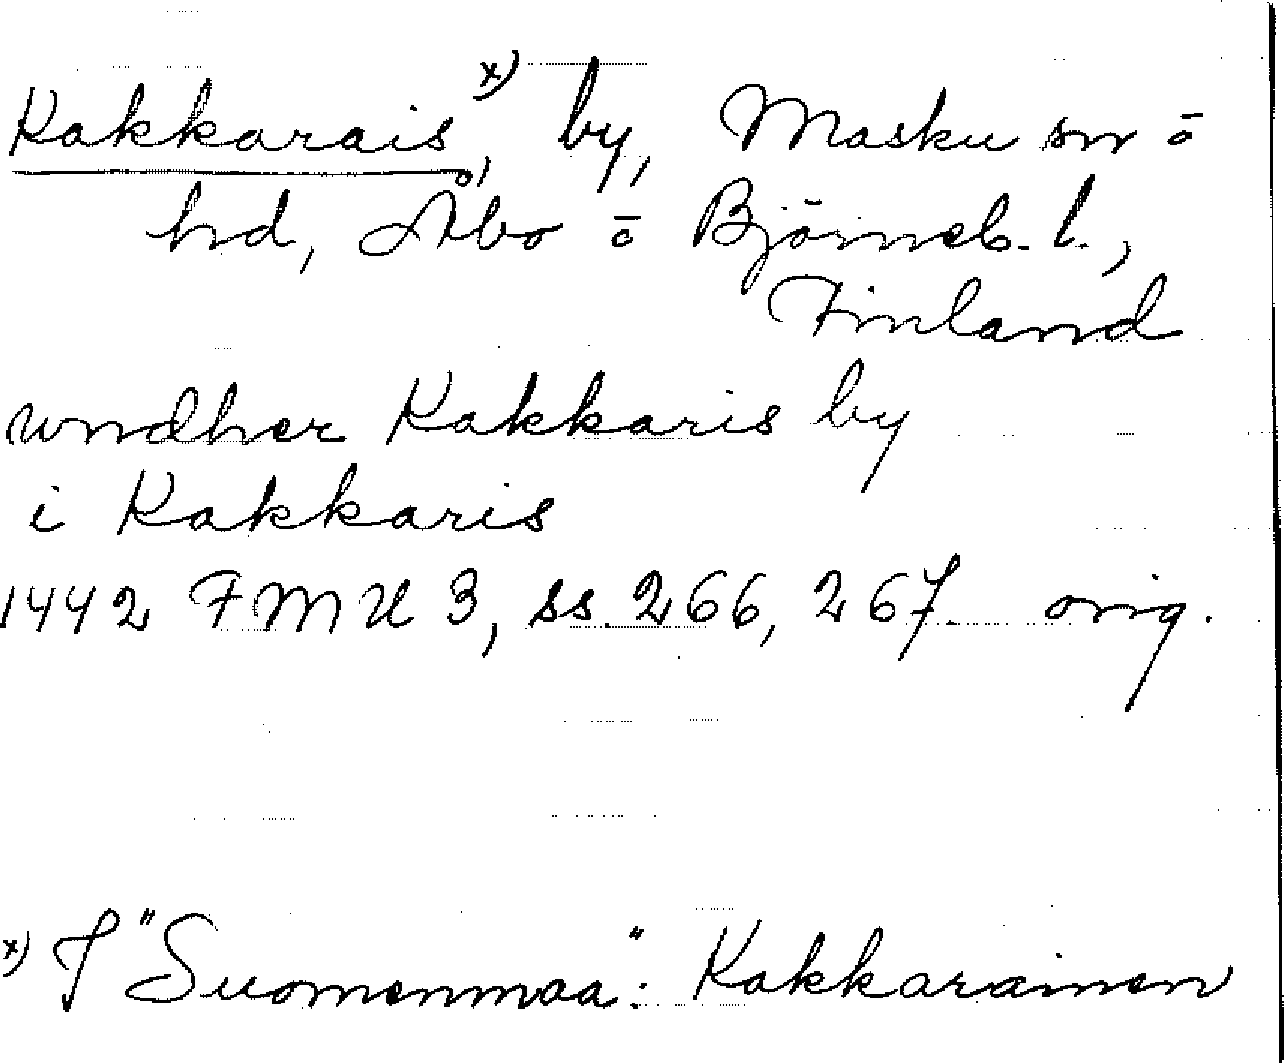 Kakkarais x), by, Masku sn ō
hd, Åbo ō Björneb. l.,
Finland
wndher Kakkaris by
i Kakkaris
1442 FMU 3, ss. 266, 267. orig.
x) I "Suomenmaa": Kakkarainen